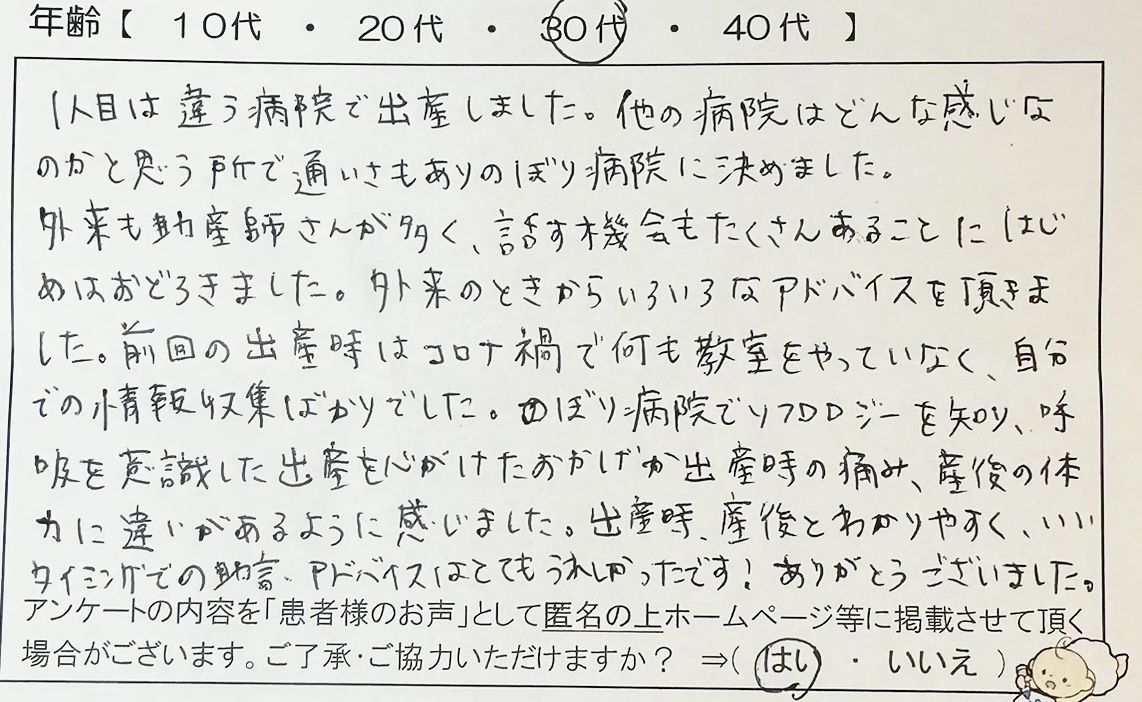 年齢【 10代 ・ 20代 ・ 30代 ・ 40代 】
1人目は違う病院で出産しました。他の病院はどんな感じな
のかと思う所で通いさもありのぼり病院に決めました。
外来も助産師さんが多く、話す機会もたくさんあることにはじ
めはおどろきました。外来のときからいろいろなアドバイスを頂きま
した。前回の出産時はコロナ禍で何も教室をやっていなく、自分
での情報収集ばかりでした。のぼり病院でソフロロジーを知り、呼
吸を意識した出産を心がけたおかげか出産時の痛み、産後の体
力に違いがあるように感じました。出産時、産後とわかりやすく、いい
タイミングでの助言、アドバイスはとてもうれしかったです！ありがとうございました。
アンケートの内容を「患者様のお声」として匿名の上ホームページ等に掲載させて頂く
場合がございます。ご了承・ご協力いただけますか？ ⇒( はい ・ いいえ )